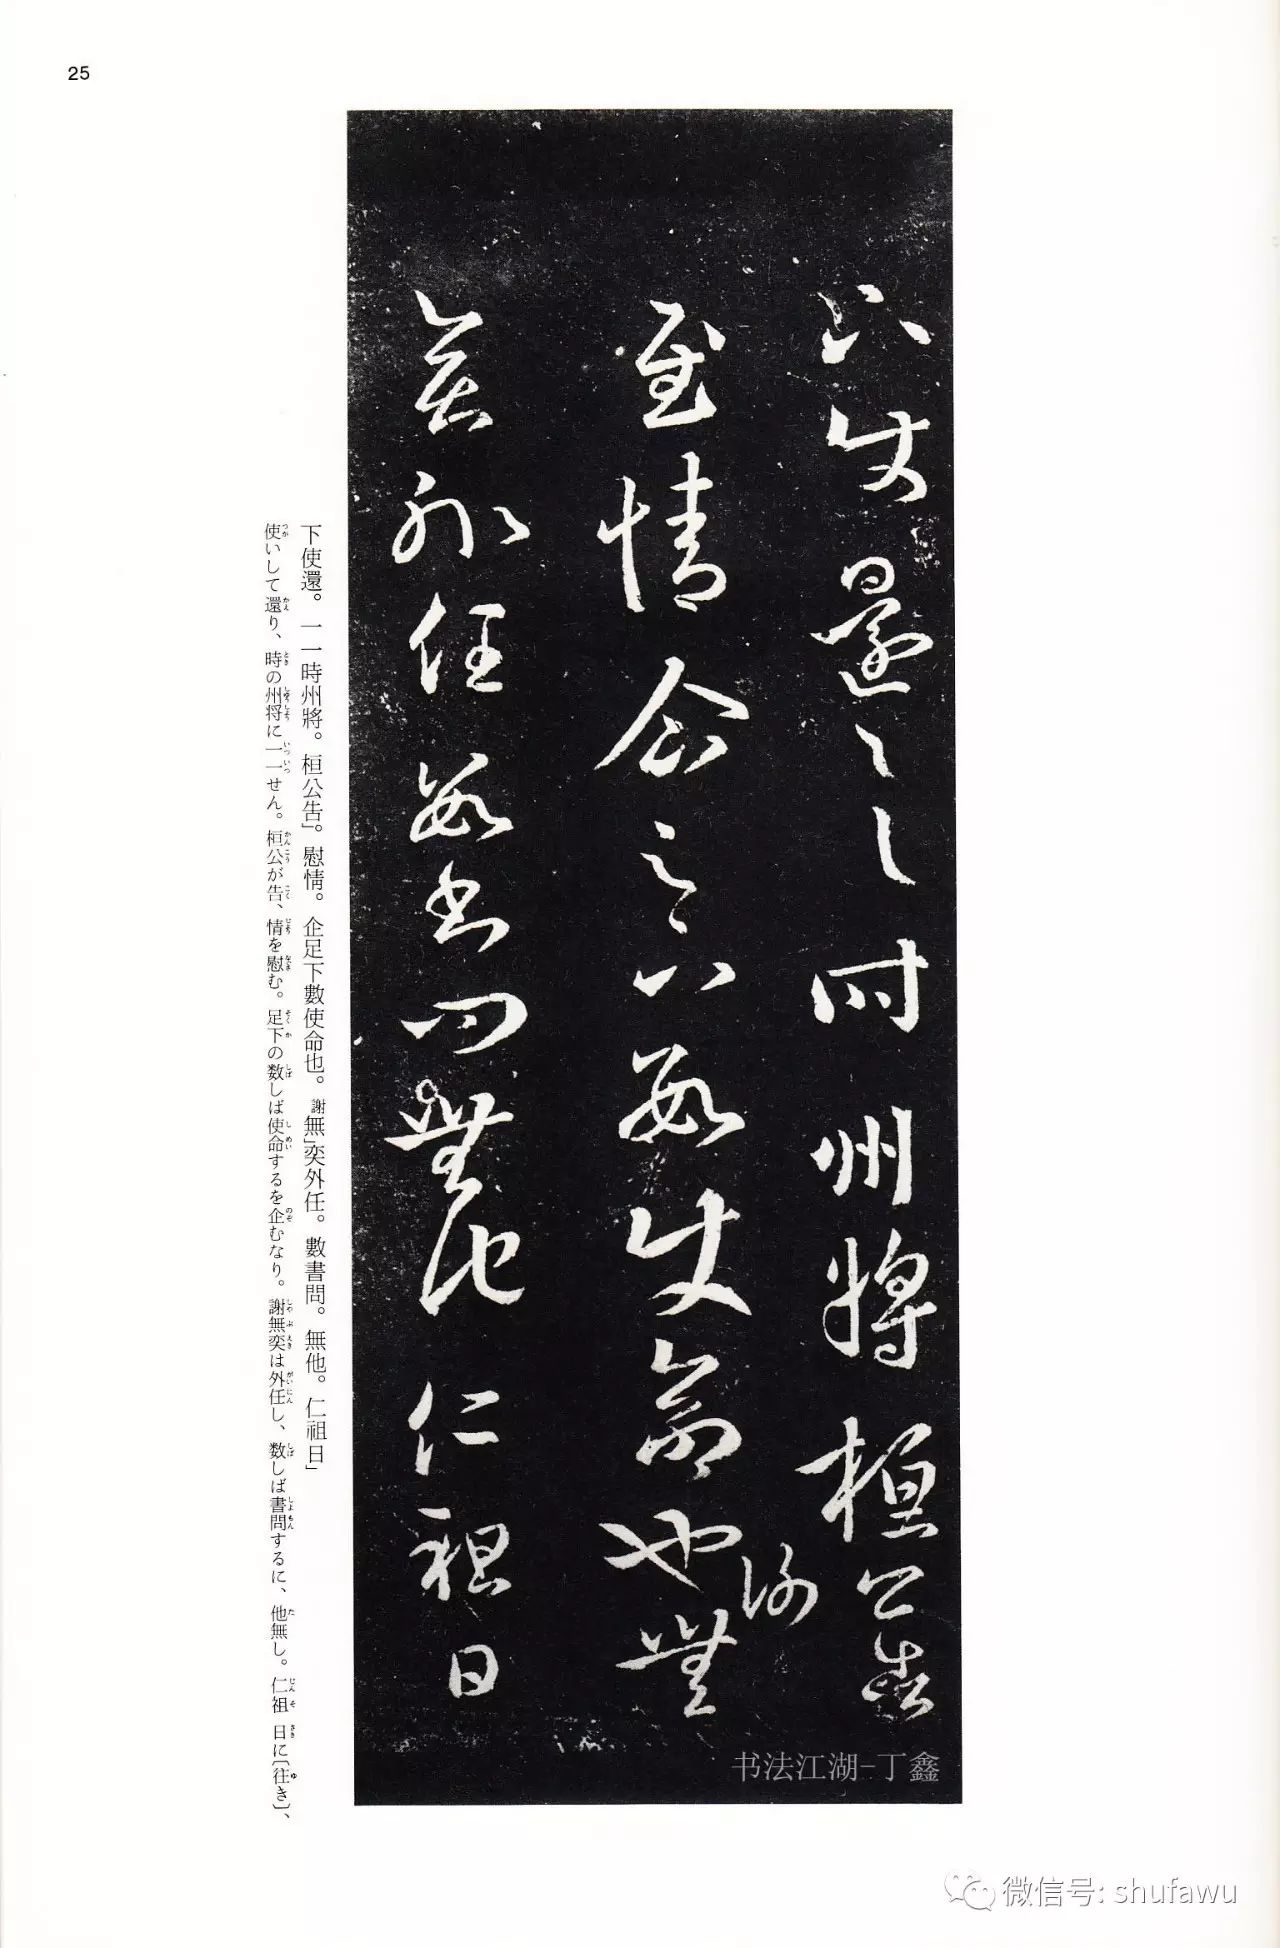 25
下使還一一時州將桓公告
慰情企足下數使命也謝無
奕外任數書問無他仁祖日
下使還。一一時州將。桓公告」。慰情。企足下數使命也。謝無」奕外任。數書問。無他。仁祖日」
使いして還り、時の州将に一一せん。桓公が告、情を慰む。足下の数しば使命するを企むなり。謝無奕は外任し、数しば書問するに、他無し。仁祖 日に〔往き〕、
书法江湖-丁鑫
微信号: shufawu